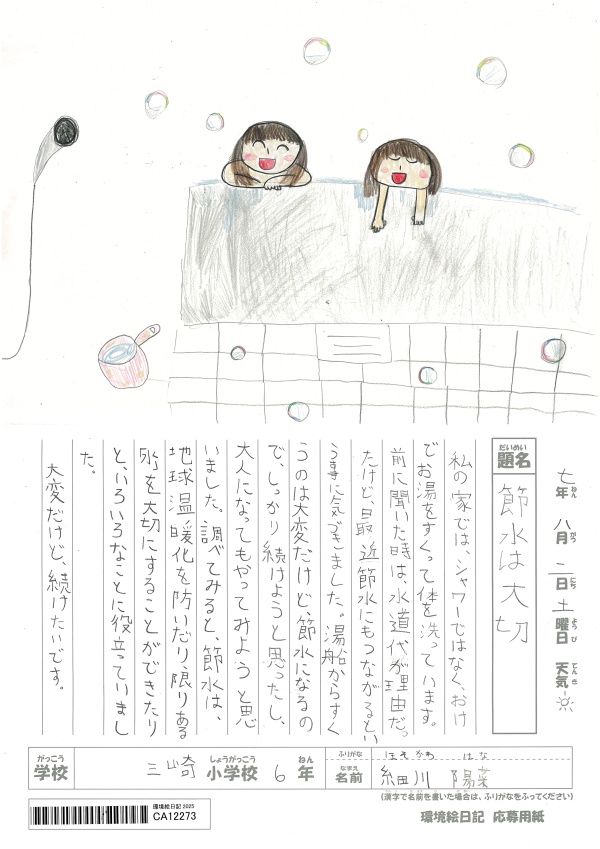 七年 八月 二日 土曜日 天気
ねん がつ にち ようび てんき
だいめい
題名
節水は大切
私の家では、シャワーではなく、おけ
でお湯をすくって体を洗っています。
前に聞いた時は、水道代が理由だっ
たけど、最近節水にもつながるとい
う事に気づきました。湯船からすく
うのは大変だけど、節水になるの
で、しっかり続けようと思ったし、
大人になってもやってみようと思
いました。調べてみると、節水は、
地球温暖化を防いだり、限りある
水を大切にすることができたり
と、いろいろなことに役立っていまし
た。
大変だけど、続けたいです。
がっこう しょうがっこう ねん
学校 三崎 小学校 6 年
ふりがな ほそかわ はな
なまえ
名前 細川 陽菜
(漢字で名前を書いた場合は、ふりがなをふってください)
環境絵日記 2025
CA12273
環境絵日記 応募用紙